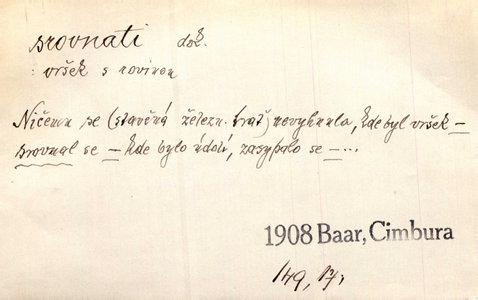 srovnati dok.
: vršek s rovinou
Ničemu se (stavěná železn. trať) nevyhnula, kde byl vršek –
srovnal se – kde bylo údolí, zasypalo se – ...
1908 Baar, Cimbura
149, 17,